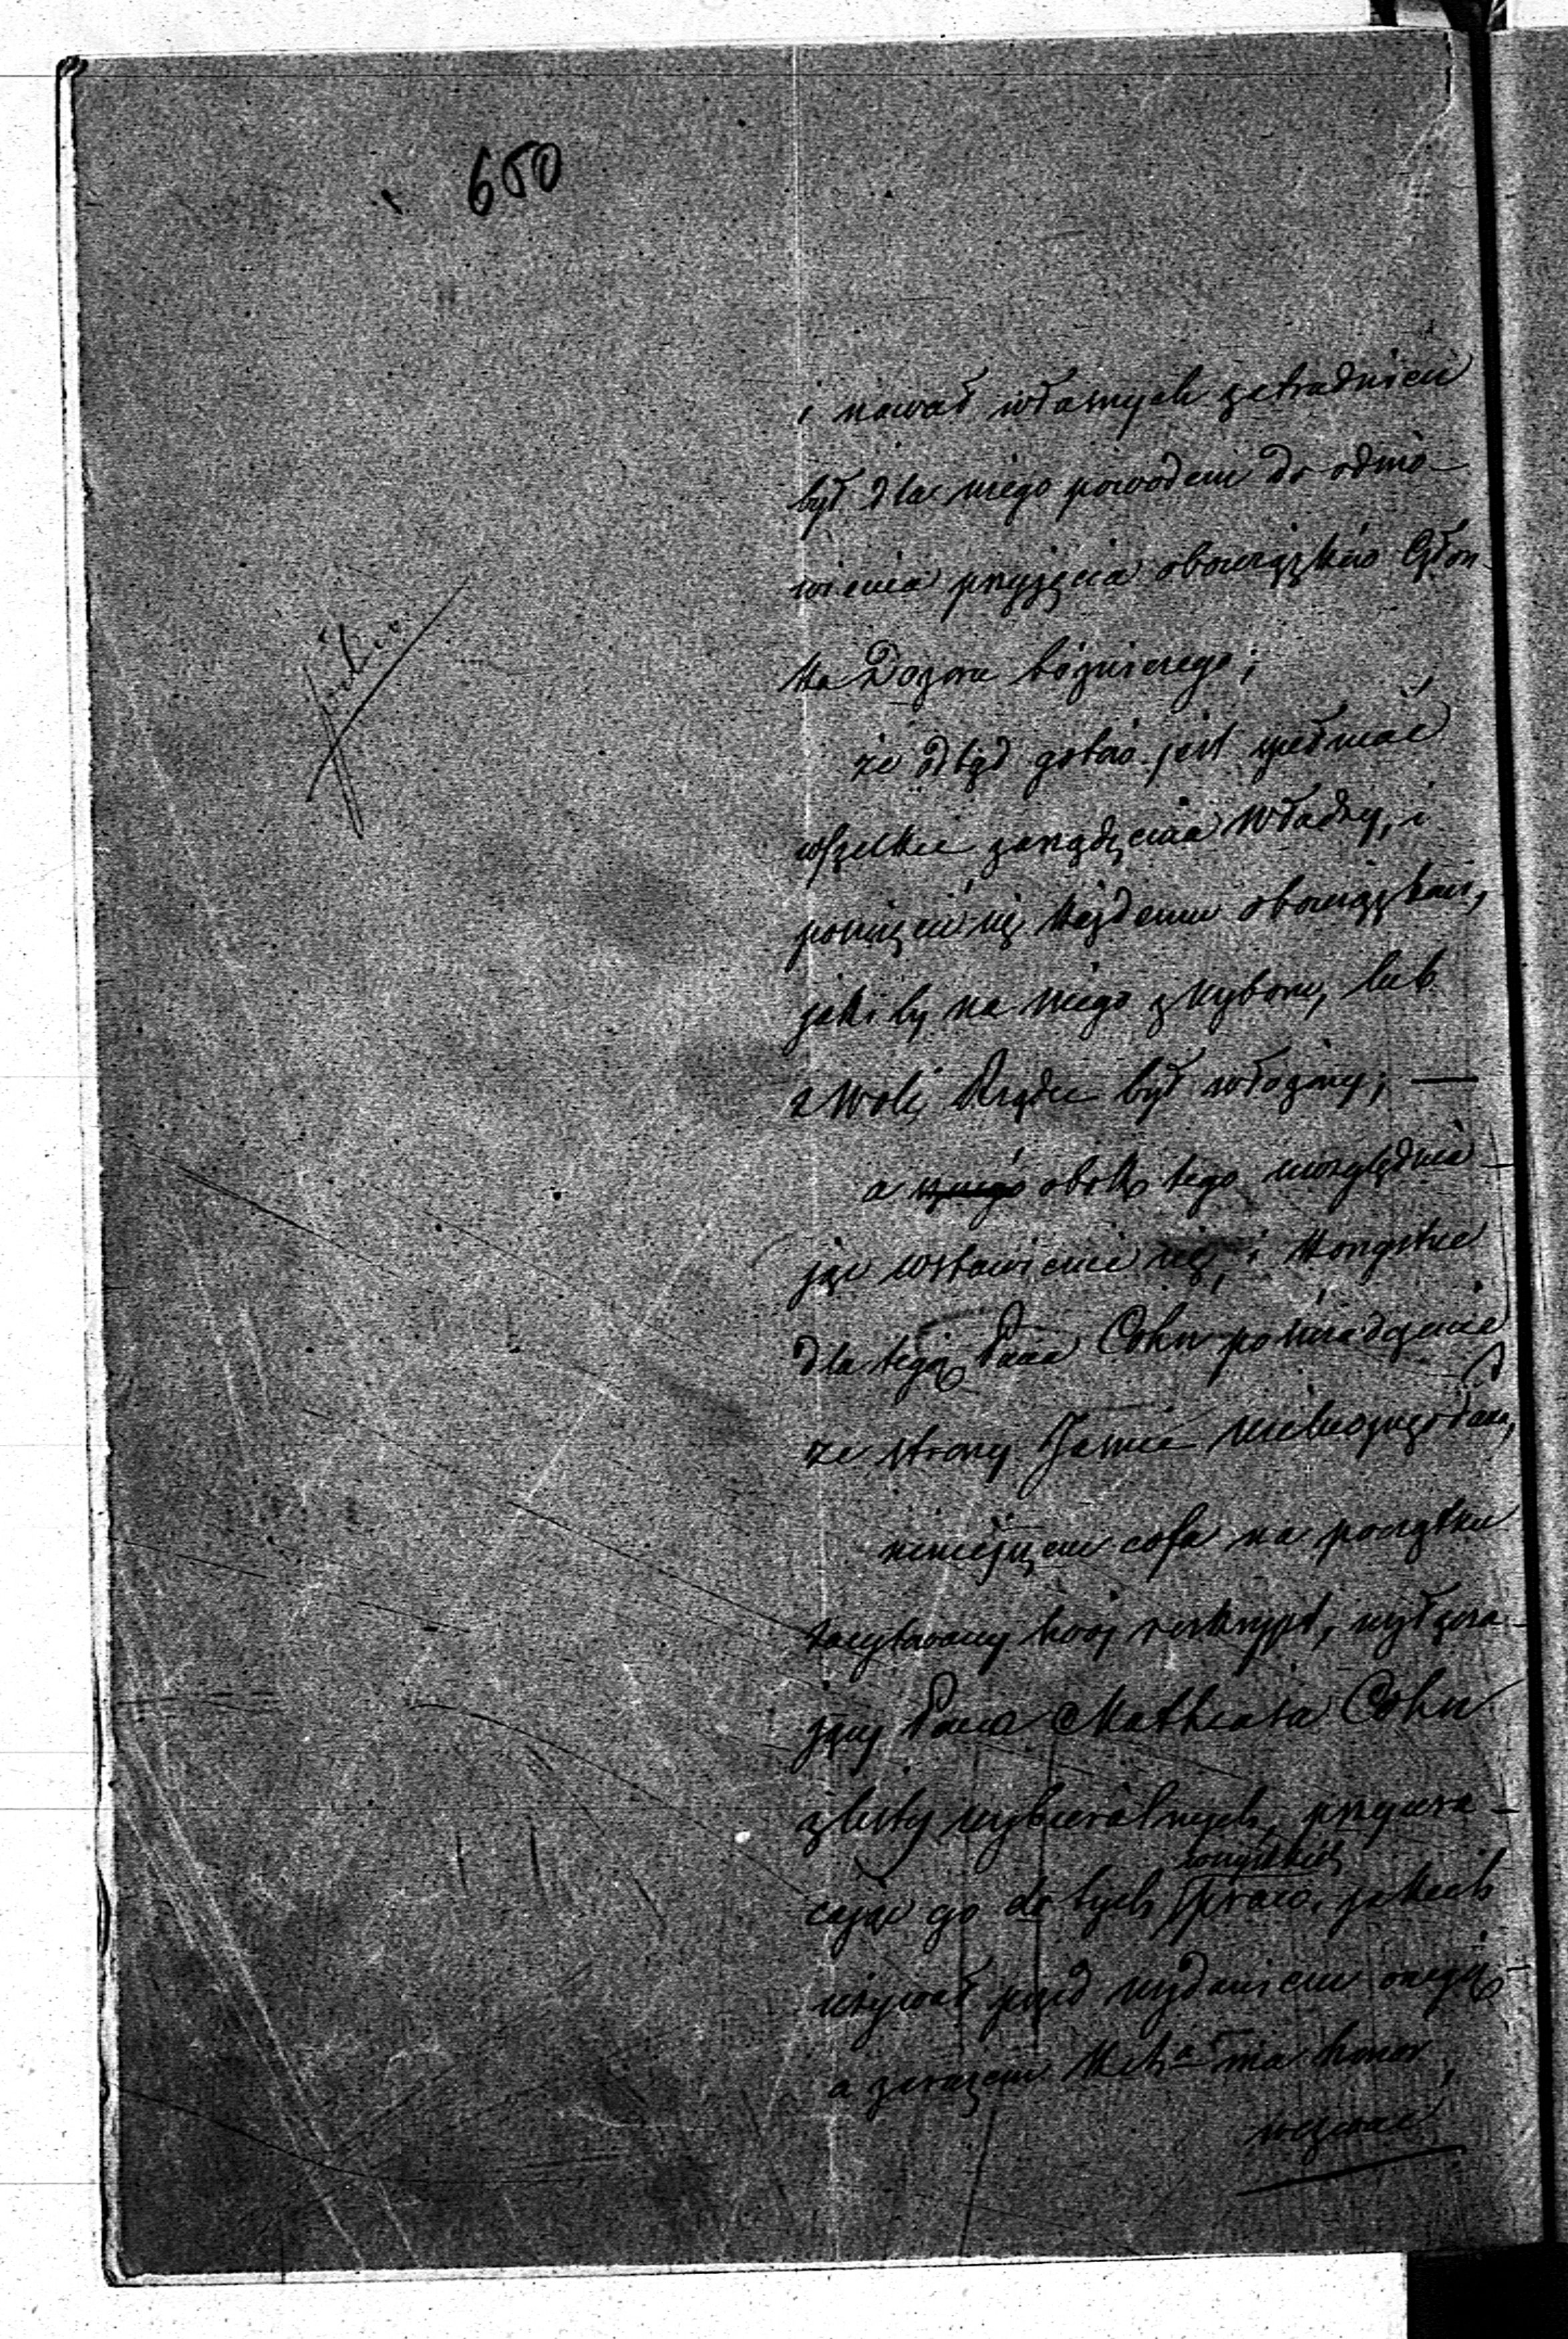 650
i nawał własnych zatrudnień
był dla niego powodem do odmó-
wienia przyjęcia obowiązków Człon-
ka Dozoru bóżniczego;
że odtąd gotów jest spełniać
wszelkie zarządzenia Władzy, i
poświęcić się każdemu obowiązkowi,
jakiby na niego z wyboru, lub
z woli Rządu był włożony; —
a obok tego uwzględnia-
jąc wstawienie się, i korzystne
dla tegoż Pana Cohn poświadczenie
ze strony Jaśnie Wielmożnego Pana,
niniejszem cofa na początku
zacytowany swój reskrypt, wyłącza-
jący Pana Mathiasa Cohn
z listy wybieralnych, przywra-
cając go do tych wszystkich praw, jakich
używał przed wydaniem onegoż
a zarazem ma honor
wezwać